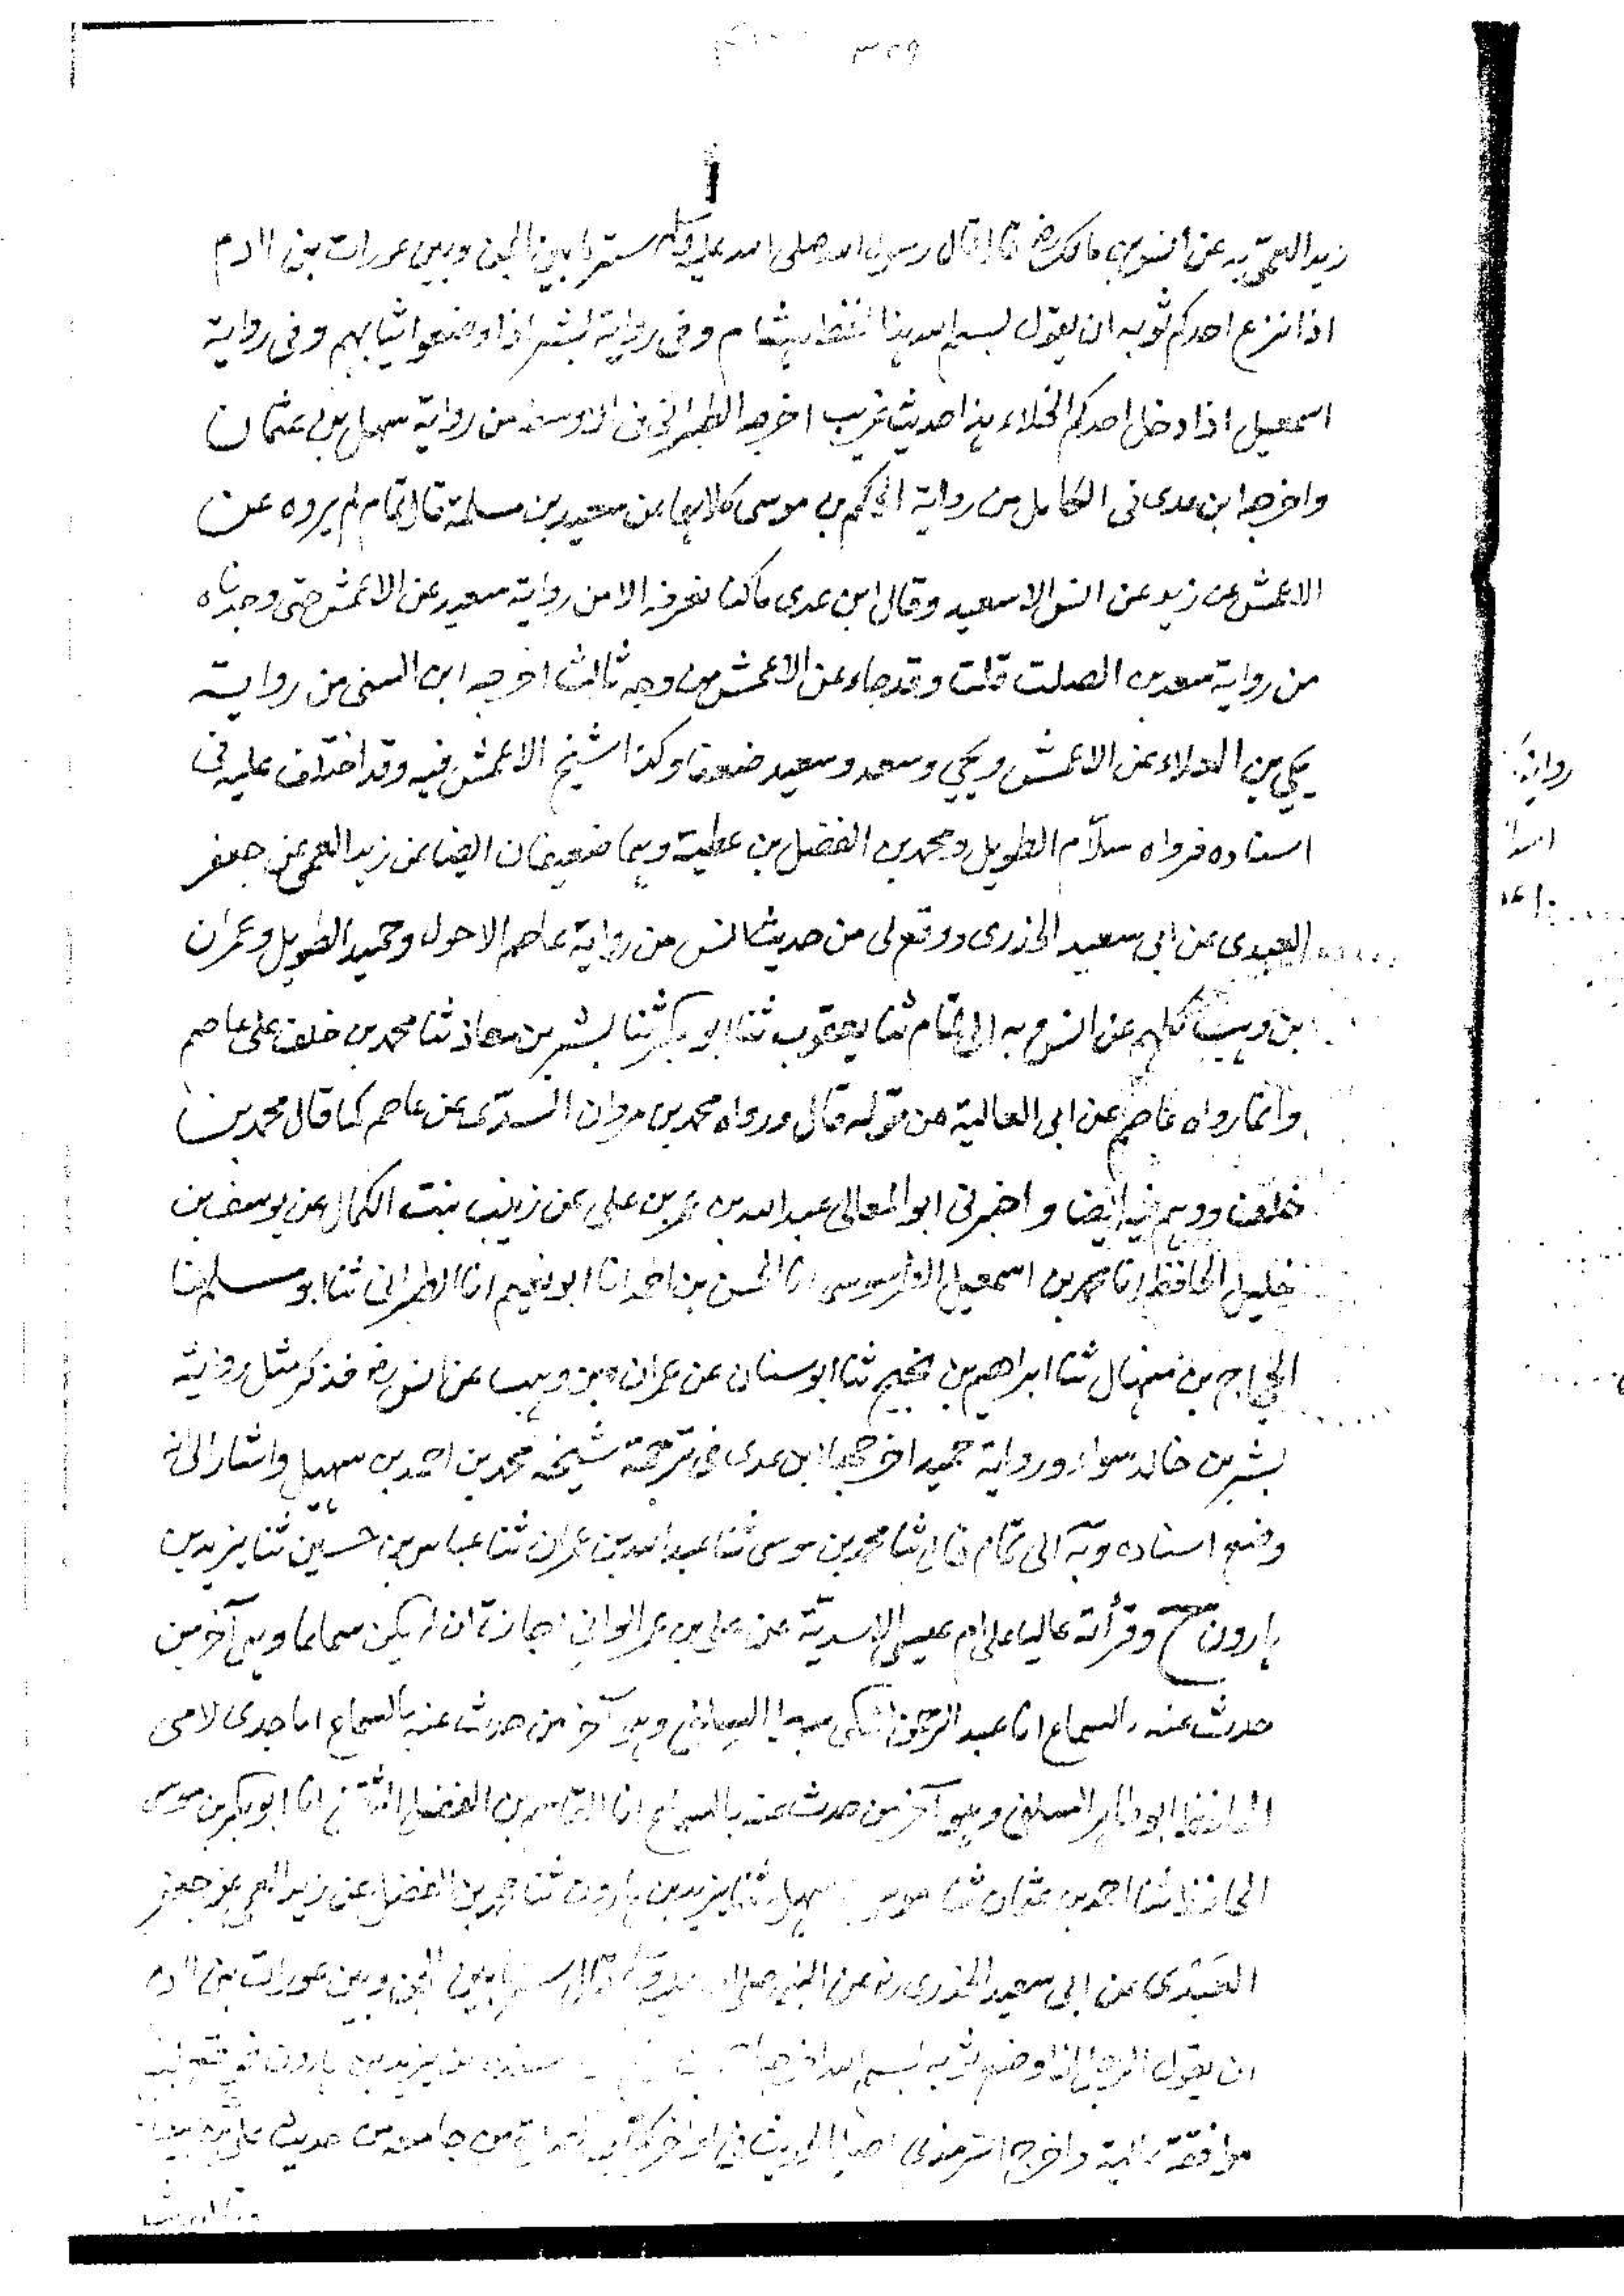 ٣٥٩
زيد العمّي به عن أنس بن مالك رضـ قال قال رسول الله صلى الله عليه وسلم ستر ما بين الجن وبين عورات بني اادم
اذا نزع احدكم ثوبه ان يقول بسم الله هذا لفظ هشام وفي رواية بشر اذا وضعوا ثيابهم وفي رواية
اسمعيل اذا دخل احدكم الخلاء هذا حديث غريب اخرجه الطبراني في الاوسط من رواية سهل بن عثمان
واخرجه ابن عدي في الكامل من رواية الحكم بن موسى كلاهما عن سعيد بن مسلمة قال تمام لم يروه عن
الاعمش عن زيد عن انس الا سعيد وقال ابن عدى ما كنا نعرفه الا من رواية سعيد عن الاعمش حتى وجدناه
من رواية سعد بن الصلت قلت وقد جاء عن الاعمش من وجه ثالث اخرجه ابن السني من رواية
يحي بن العلاء عن الاعمش ويحي وسعد وسعيد ضعفا وكذا شيخ الاعمش فيه وقد اختلف عليه في
اسناده فرواه سلّام الطويل ومحمد بن الفضل بن عطية وهما ضعيفان ايضا عن زيد العمي عن جعفر
العبدى عن ابي سعيد الخدرى ووقع لي من حديث انس من رواية عاصم الاحول وحميد الطويل وعمران
بن وهب كلهم عن انس وبه الى تمام ثنا يعقوب ثنا ابو بكر ثنا بشر بن معاذ ثنا محمد بن خلف على عاصم
وانما رواه عاصم عن ابي العالية من قوله قال ورواه محمد بن مروان السدّى عن عاصم كما قال محمد بن
خلف ووهم فيه ايضا واخبرني ابو المعالي عبد الله بن عمر بن علي عن زينب بنت الكمال عن يوسف بن
خليل الحافظ انا محمد بن اسمعيل الطرسوسى انا الحسن بن احمد انا ابو نعيم انا الطبراني ثنا ابو مسلم ثنا
الحجاج بن منهال ثنا ابراهيم بن نجيح ثنا ابو سنان عن عمران بن وهب عن انس رضـ فذكر مثل رواية
بشر بن خالد سواء ورواية حميد اخرجها ابن عدى في ترجمة شيخه محمد بن احمد بن سهيل واشار الى انه
وضع اسناده وبه الى تمام قال ثنا محمد بن موسى ثنا عبد الله بن عمران ثنا عباس بن حسين ثنا يزيد بن
هارون ح وقرأته عاليا على ام عيسى الاسديّة عن علي بن عمر الواني اجازة ان لم يكن سماعا وهي آخر من
حدث عنه بالسماع انا عبد الرحمن بن مكى سبط السلفي وهو آخر من حدث عنه بالسماع انا جدى لامى
الحافظ ابو طاهر السلفي وهو آخر من حدث عنه بالسماع انا القاسم بن الفضل الثقفي انا ابو بكر بن موسى
الحافظ ثنا احمد بن عثمان ثنا سهل ثنا يزيد بن هارون ثنا محمد بن الفضل عن زيد العمي عن جعفر
العبدى عن ابي سعيد الخدرى رضـ عن النبي صلى الله عليه وسلم قال ستر ما بين الجن وبين عورات بني اادم
ان يقول الرجل اذا وضع ثوبه بسم الله اخرجه عن يزيد بن هارون فوقع لنا
موافقة عالية واخرج الترمذى اصل الحديث في اواخر كتاب الصلاة من جامعه من حديث علي
رواية